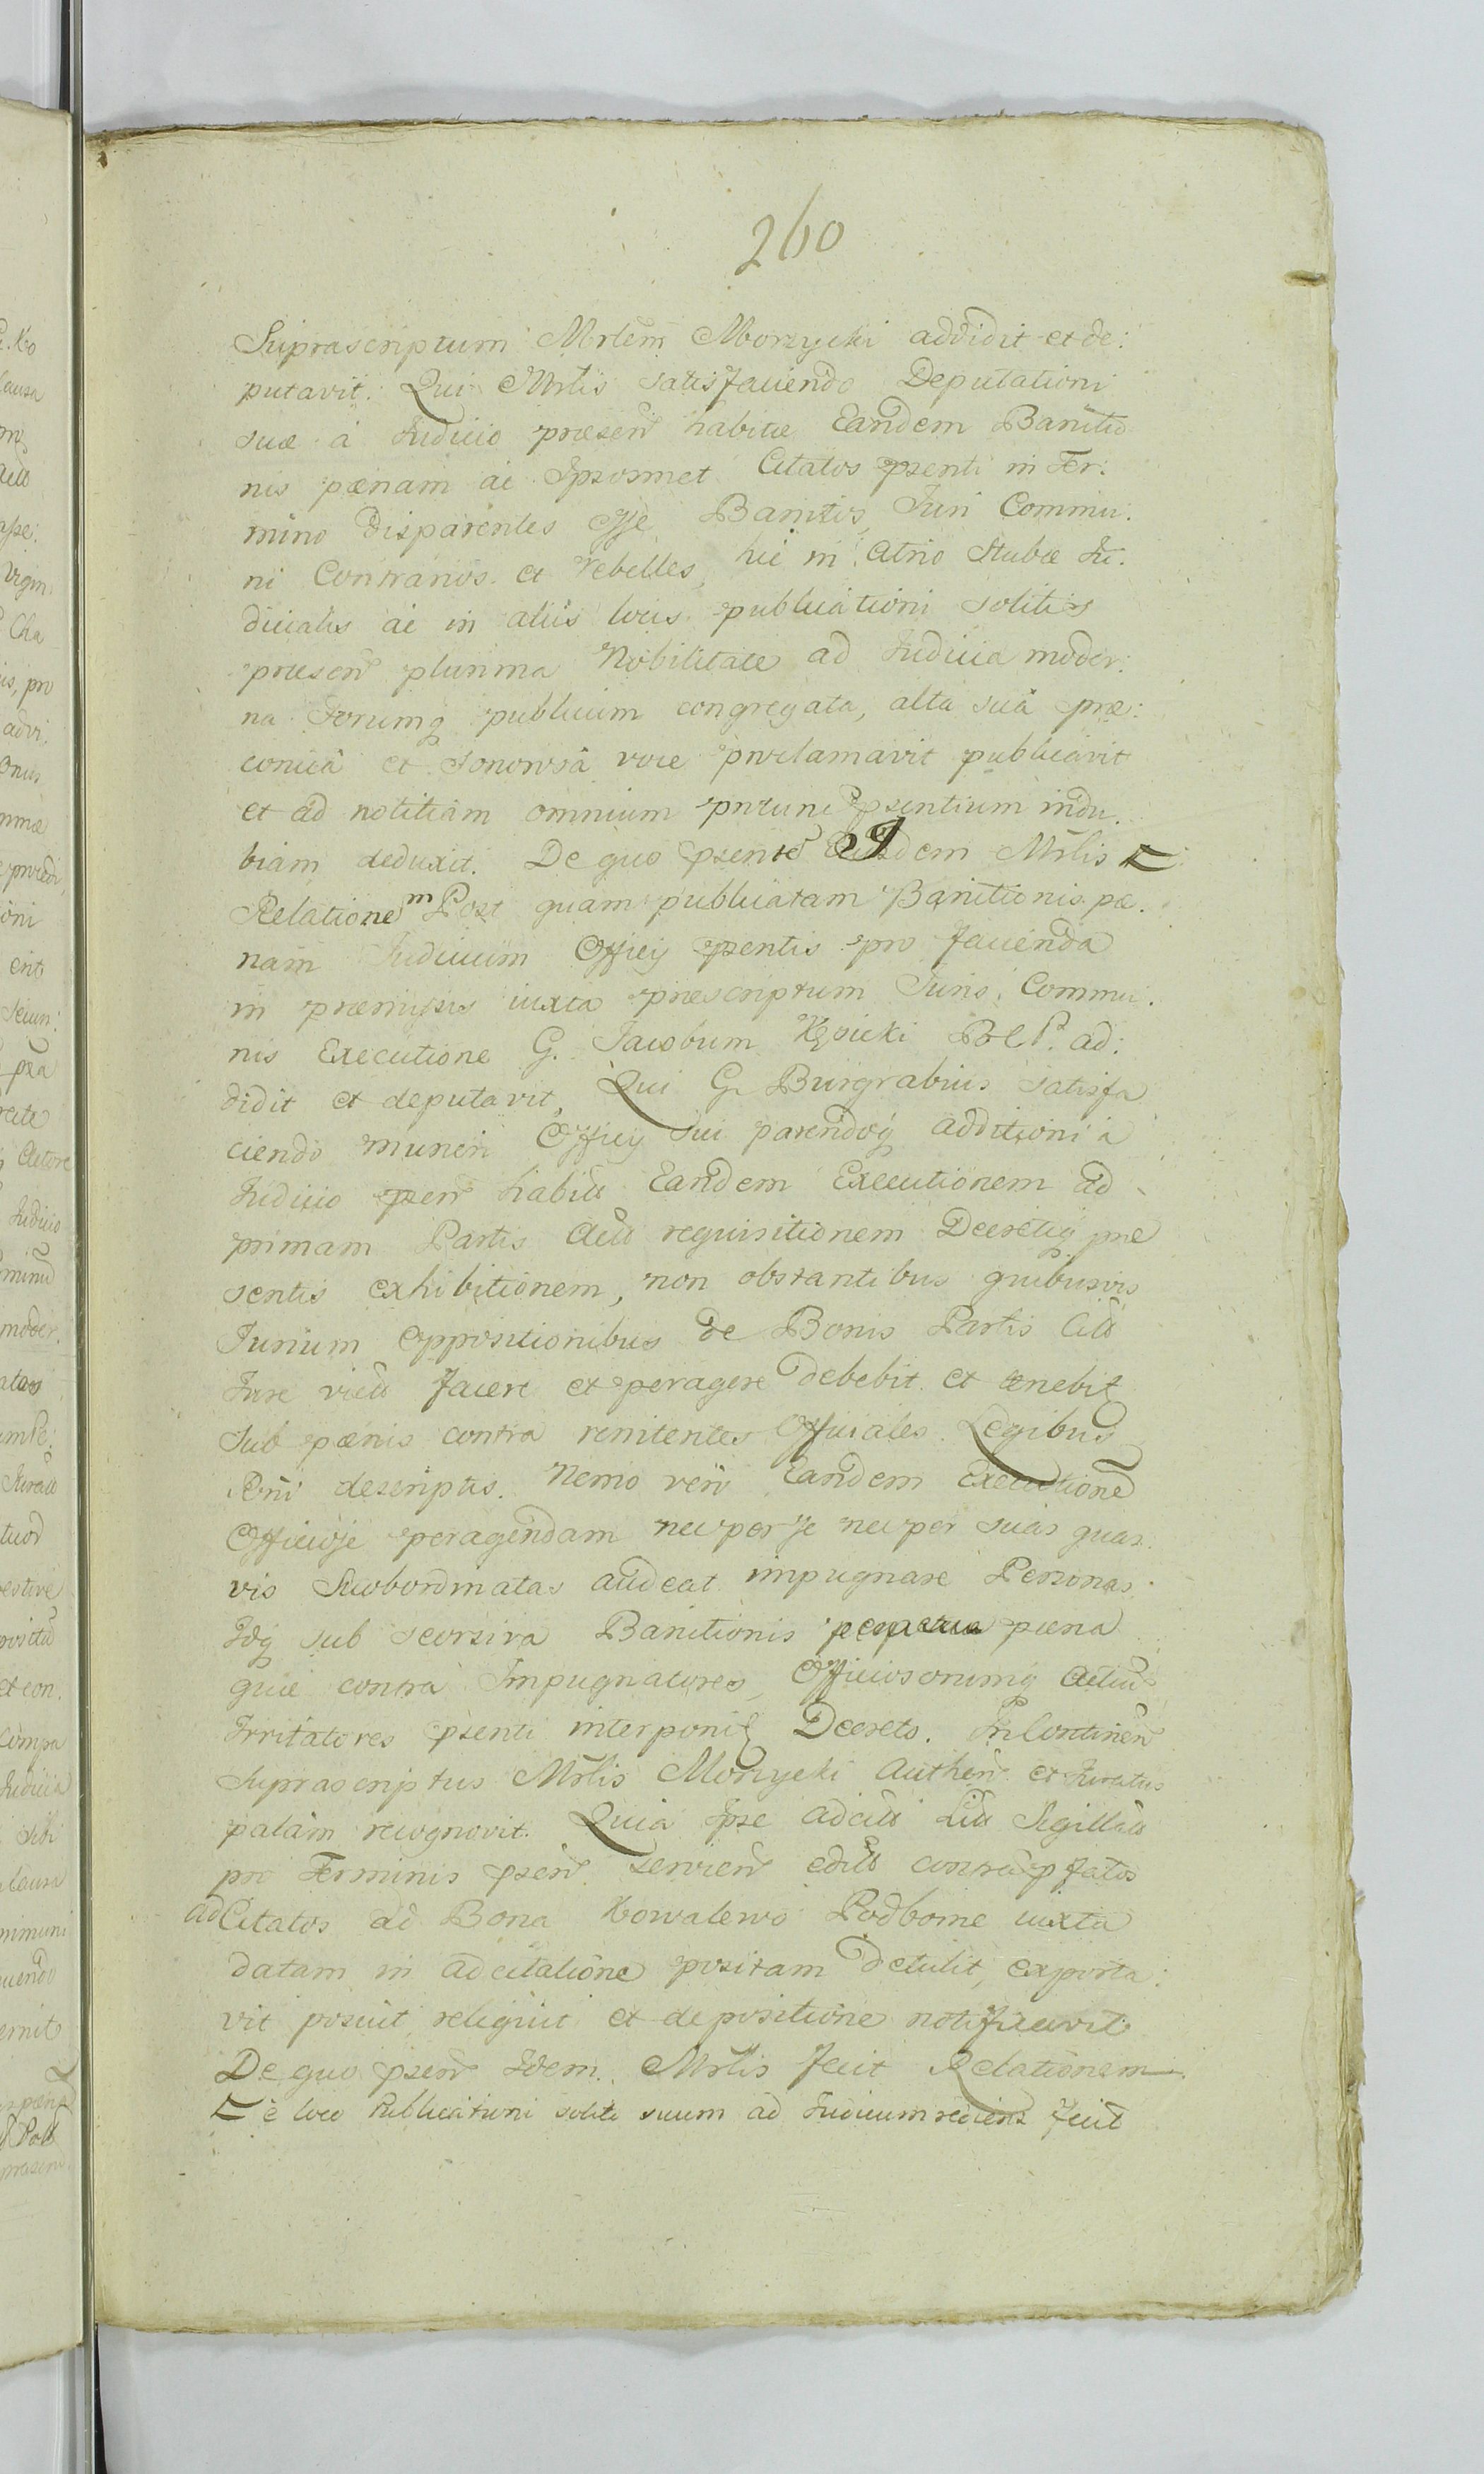 260
Suprascriptum Mrlem Morzycki addidit et de:
putavit. Qui Mrlis satisfaciendo Deputationi
suæ à Judicio præsen habitæ Eandem Banitio
nis pænam ac Ipsosmet Citatos psenti in Ter:
mino Disparentes esse Banitos, Juri Commu:
ni Contrarios et rebelles, hic in Atrio Stubæ Ju:
dicialis ac in aliis locis publicationi solitis
præsen plurima Nobilitate ad Judicia moder:
na Forumq publicum congregata, alta suâ præ:
conicâ et Sonorosâ voce proclamavit publicavit
et ad notitiam omnium prtunc psentium indu:
biam deduxit. De quo psente Idem Mrlis
Relationem Post quam publicatam Banitionis pæ:
nam Judicium Officij psentis pro facienda
in præmissis iuxta præscriptum Juris Commu:
nis Executione G. Jacobum Kęsicki B C P. ad:
didit et deputavit, Qui G. Burgrabius satisfa
ciendo muneri Officij sui parendoq additioni à
Judicio psen habitæ Eandem Executionem ad
primam Partis Acto requisitionem Decretiq præ
sentis exhibitionem, non obstantibus quibusvis
Jurium Oppositionibus de Bonis Partis Citt
Jure victt facere et peragere debebit et tenebit
sub pænis contra renitentes Officiales Legibus
Rni descriptis. Nemo vero Eandem Executione
Officiose peragendam nec per se nec per suas quas
vis Subordinatas audeat impugnare Personas
Idq sub seorsiva Banitionis perpetua pæna
quæ contra Impugnatores, Officiosorumq Actuu
Irritatores psenti interponit Decreto. In Continen
Suprascriptus Mrlis Morzycki Authen et Juratus
palàm recognovit. Quia Ipse adcitt Litt Sigillatt
pro Terminis psen servien editt contra pfatos
adCitatos ad Bona Kowalewo Podborne iuxta
datam in adcitatione positam detulit, exporta:
vit posuit reliquit et depositione notificavit
De quo psen Idem Mrlis fecit Relationem
è loco Publicationi solito suum ad Judicium rediens fecit